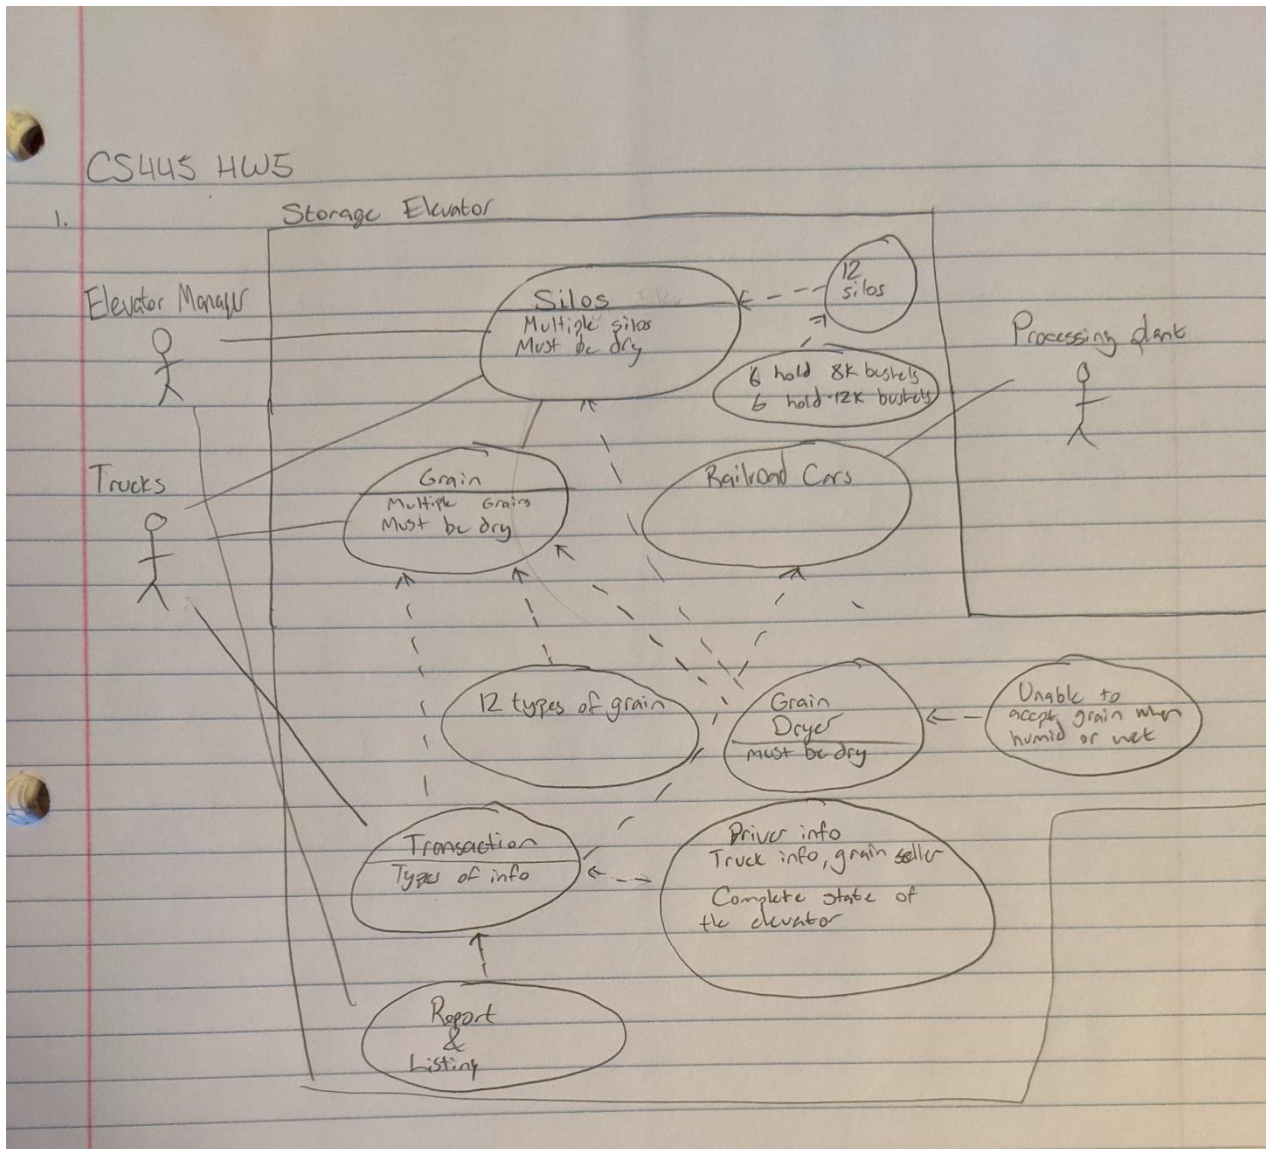 CS445 HW5
1.
Storage Elevator
Elevator Manager
Silos
Multiple silos
Must be dry
12
silos
6 hold 8K bushels
6 hold 12K bushels
Processing plant
Trucks
Grain
Multiple Grains
Must be dry
Railroad Cars
12 types of grain
Grain
Dryer
must be dry
Unable to
accept grain when
humid or wet
Transaction
Types of info
Driver info
Truck info, grain seller
Complete state of
the elevator
Report
&
Listing